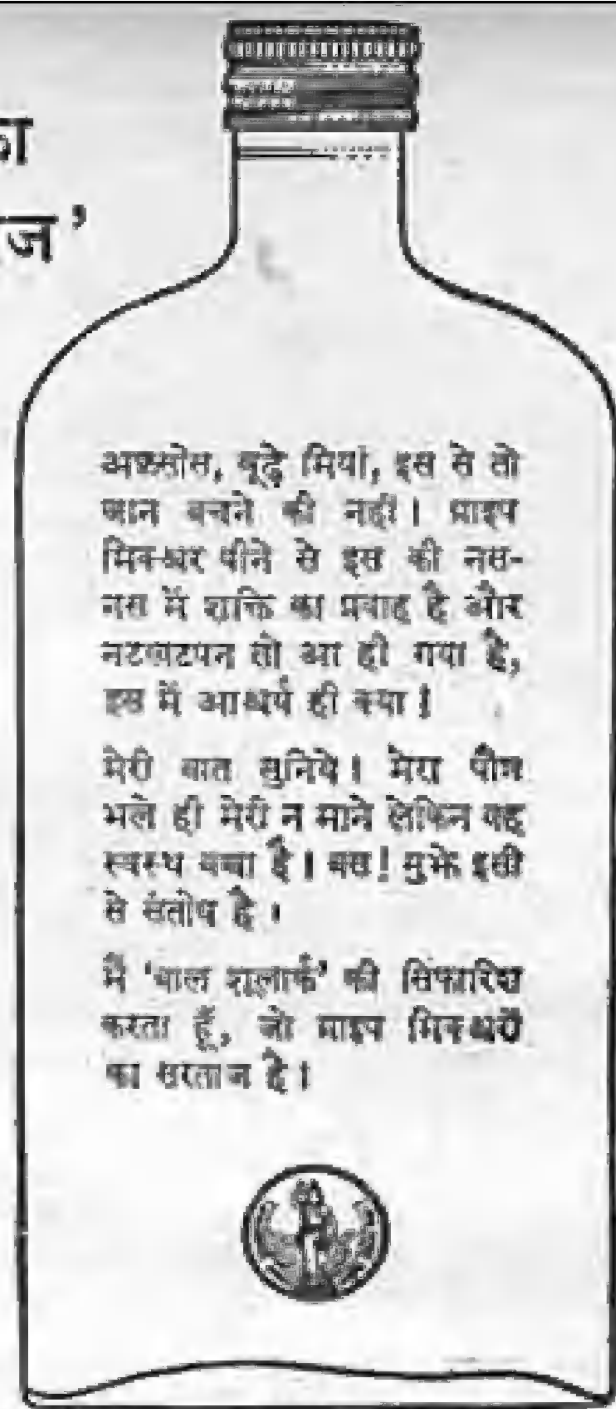 का
ज’
अफ़सोस, बूढ़े मियां, इस से तो
जान बचने की नहीं। ग्राइप
मिक्श्चर पीने से इस की नस-
नस में शक्ति का प्रवाह है और
नटखटपन तो आ ही गया है,
इस में आश्चर्य ही क्या!
मेरी बात सुनिये। मेरा पौत्र
भले ही मेरी न माने लेकिन वह
स्वस्थ बच्चा है। बस! मुझे इसी
से संतोष है।
मैं ‘बाल शलार्क’ की सिफ़ारिश
करता हूँ, जो ग्राइप मिक्श्चरों
का सरताज है।